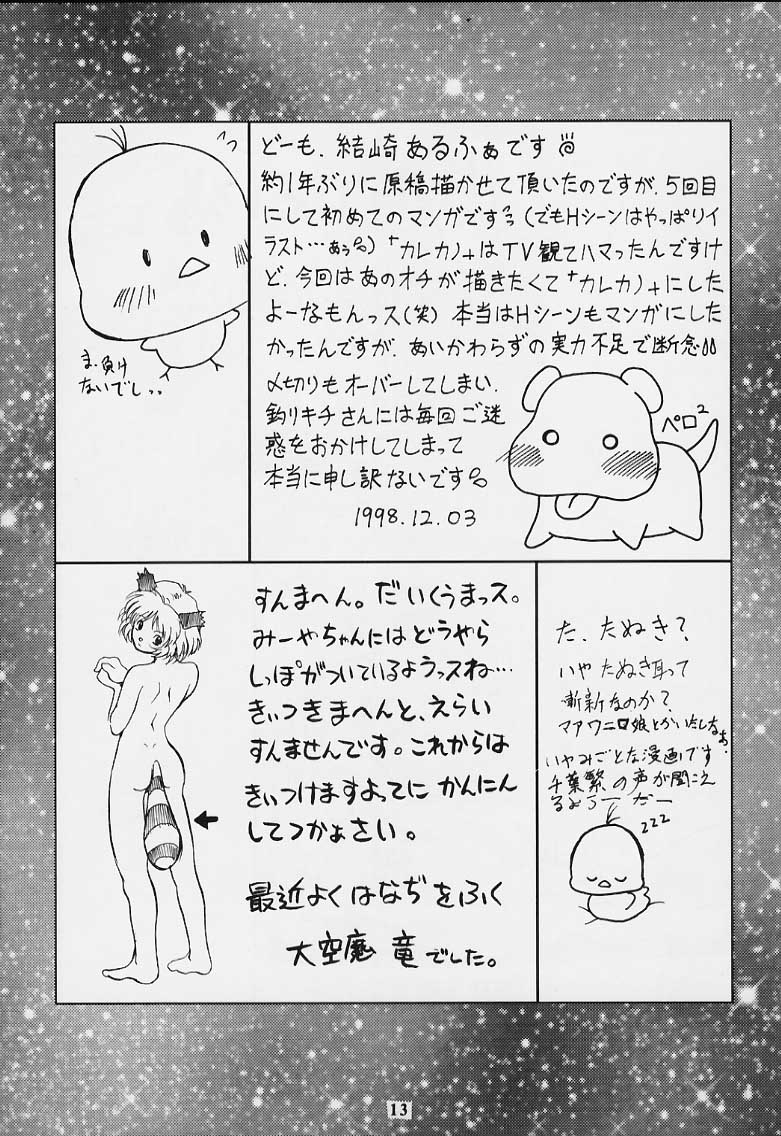 どーも、結崎あるふぁです
約1年ぶりに原稿描かせて頂いたのですが、5回目
にして初めてのマンガです（でもHシーンはやっぱりイ
ラスト…あぅ）「カレカノ」はTV観てハマったんですけ
ど、今回はあのオチが描きたくて「カレカノ」にした
よーなもんっス(笑) 本当はHシーンもマンガにした
かったんですが、あいかわらずの実力不足で断念
〆切りもオーバーしてしまい、
釣りキチさんには毎回ご迷
惑をおかけしてしまって
本当に申し訳ないです
1998.12.03
ま、負け
ないでし
ペロ2
すんまへん。だいくうまっス。
みーやちゃんにはどうやら
しっぽがついているようっスね…
きぃつきまへんと、えらい
すんませんです。これからは
きぃつけますよってに かんにん
してつかぁさい。
最近よくはなぢをふく
大空魔 竜でした。
た、たぬき？
いや たぬき耳って
斬新なのか？
いやみごとな漫画です
千葉繁の声が聞こえ
るようーだー
zzz
13